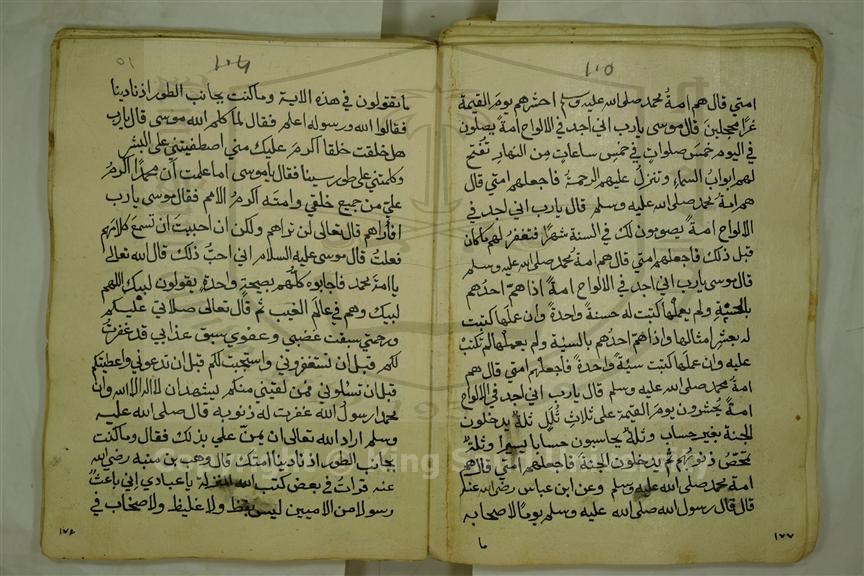 ١٠٥
امتي قال هم امة محمد صلى الله عليه وسلم احشرهم يوم القيمة
غرا محجلين قال موسى يارب اني اجد في الالواح امة يصلون
في اليوم خمس صلوات في خمس ساعات من النهار تفتح
لهم ابواب السماء وتنزل عليهم الرحمة فاجعلهم امتي قال
هم امة محمد صلى الله عليه وسلم قال يارب اني اجد في
الالواح امة يصومون لك في السنة شهرا فتغفر لهم ماكان
قبل ذلك فاجعلهم امتي قال هم امة محمد صلى الله عليه وسلم
قال موسى يارب اني اجد في الالواح امة اذا هم احدهم
بالحسنة ولم يعملها كتبت له حسنة واحدة وان عملها كتبت
له بعشر امثالها واذا هم احدهم بالسيئة ولم يعملها لم تكتب
عليه وان عملها كتبت سيئة واحدة فاجعلهم امتي قال هم
امة محمد صلى الله عليه وسلم قال يارب اني اجد في الالواح
امة يحشرون يوم القيمة على ثلاث ثلل ثلة يدخلون
الجنة بغير حساب وثلة يحاسبون حسابا يسيرا وثلة
تمحص ذنوبهم ثم يدخلون الجنة فاجعلهم امتي قال هم
امة محمد صلى الله عليه وسلم وعن ابن عباس رضي الله عنه
قال قال رسول الله صلى الله عليه وسلم يوما لاصحابه
ما
١٧٧
١٠٦
ما تقولون في هذه الاية وما كنت بجانب الطور اذ نادينا
فقالوا الله ورسوله اعلم فقال لما كلم الله موسى قال يارب
هل خلقت خلقا اكرم عليك مني اصطفيتني على البشر
وكلمتني على طور سينا فقال ياموسى اما علمت ان محمدا اكرم
علي من جميع خلقي وامته اكرم الامم فقال موسى يارب
افاراهم قال تعالى لن تراهم ولكن ان احببت ان تسمع كلامهم
فعلت قال موسى عليه السلام اني احب ذلك قال الله تعالى
ياامة محمد فاجابوه كلهم بصيحة واحدة يقولون لبيك اللهم
لبيك وهم في عالم الغيب ثم قال تعالى صلاتي عليكم
ورحمتي سبقت غضبي وعفوي سبق عذابي قد غفرت
لكم قبل ان تستغفروني واستجبت لكم قبل ان تدعوني واعطيتكم
قبل ان تسئلوني فمن لقيني منكم يشهد ان لااله الا الله وان
محمدا رسول الله غفرت له ذنوبه قال صلى الله عليه
وسلم اراد الله تعالى ان يمن علي بذلك فقال وما كنت
بجانب الطور اذ نادينا امتك قال وهب بن منبه رضي الله
عنه قرات في بعض كتب الله المنزلة ياعبادي اني باعث
رسولا من الاميين ليس بفظ ولا غليظ ولا صخاب في